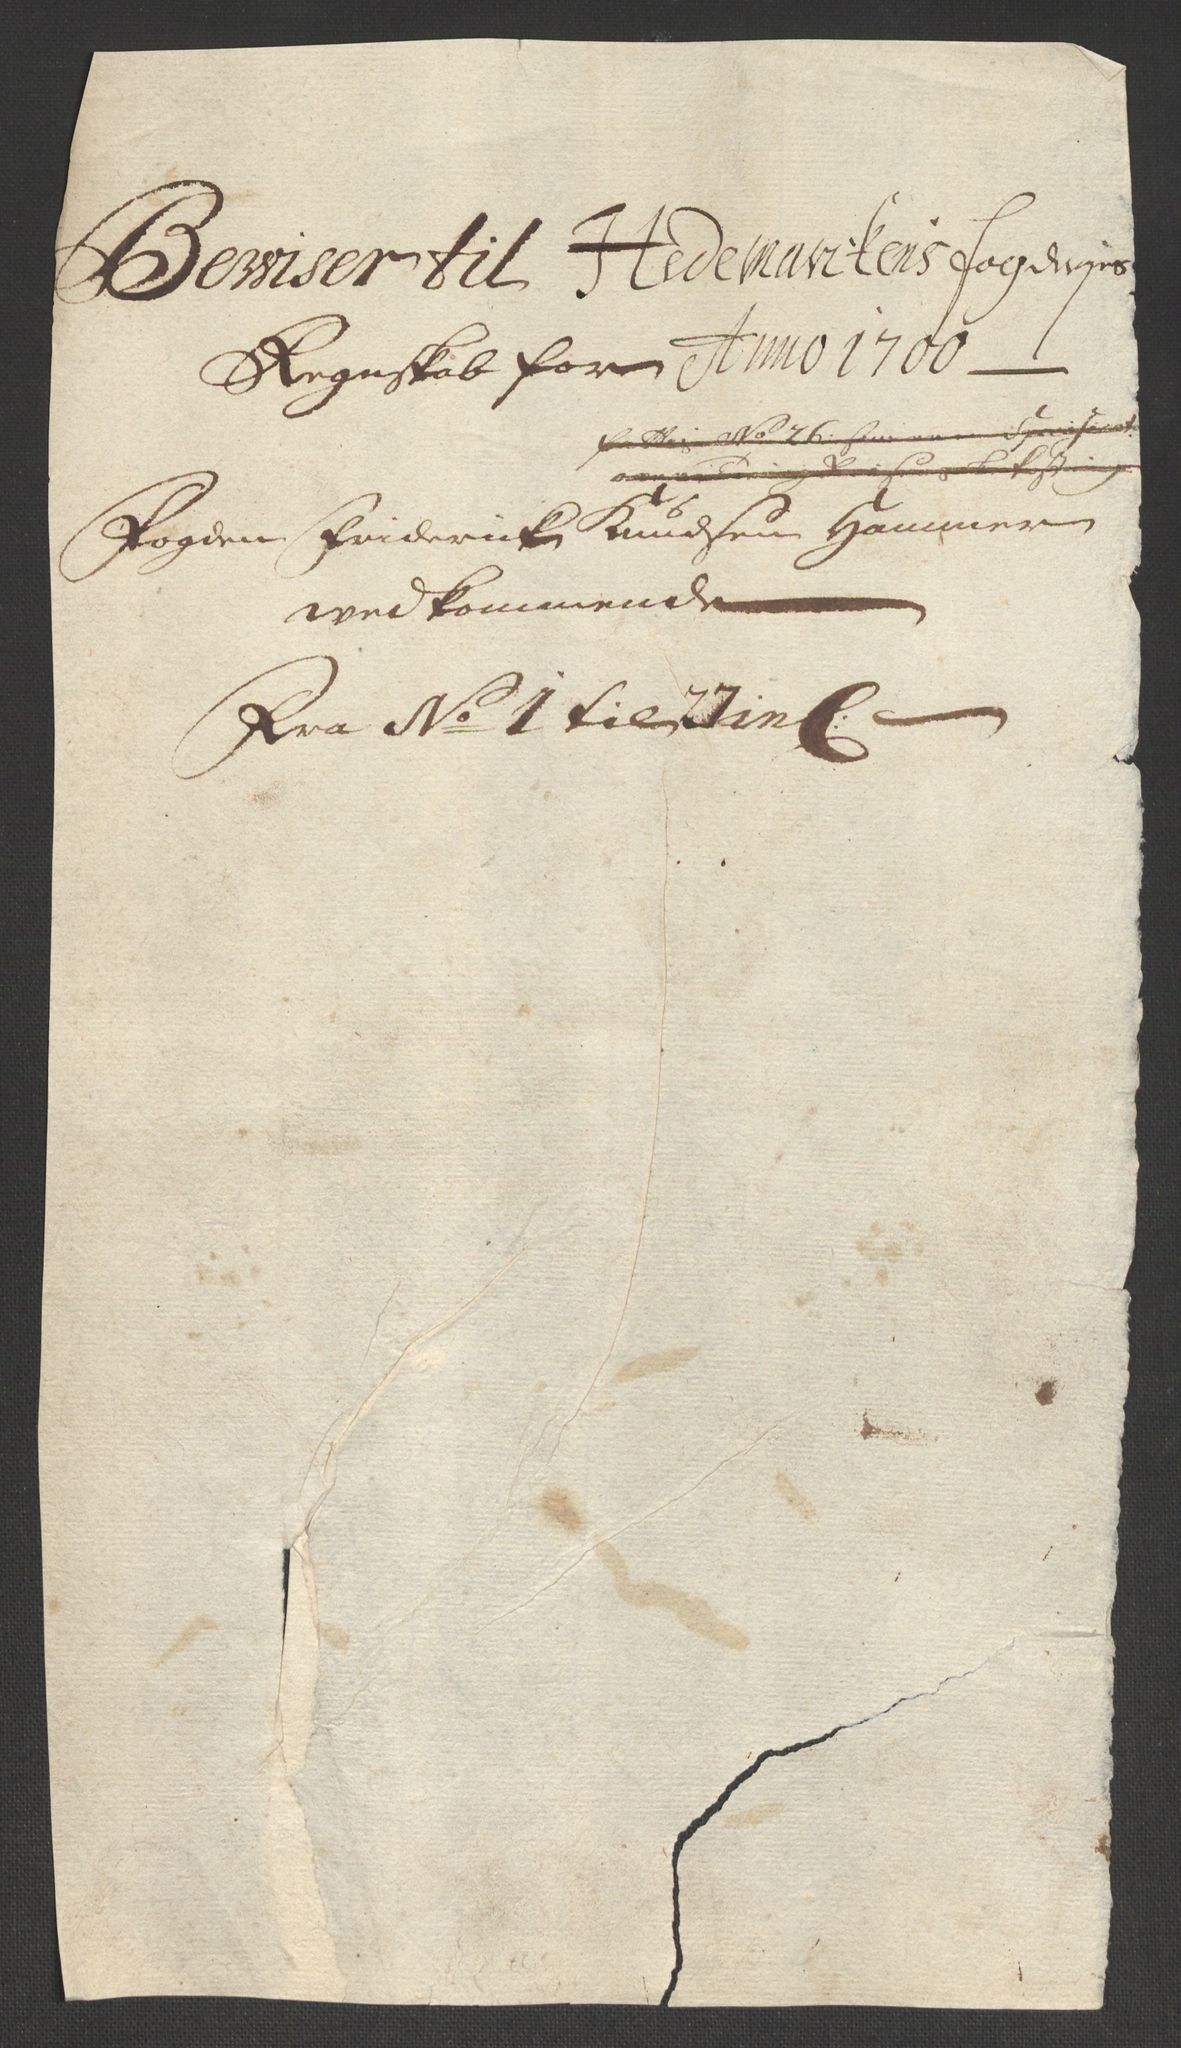 Bewiser til Hedemarckens fogderjes
Regnskab for Anno 1700
No 26.
Fogden Friderich Knudsen Hammer
ved kommende
Fra No 1 til 27 incl: